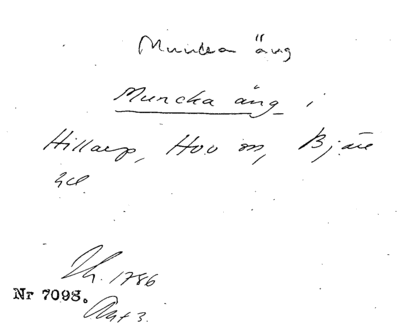 Muncka äng
Muncka äng i
Hillarp, Hov sn, Bjäre
hd.
Lh. 1786
Nr 7098.
Akt 3.